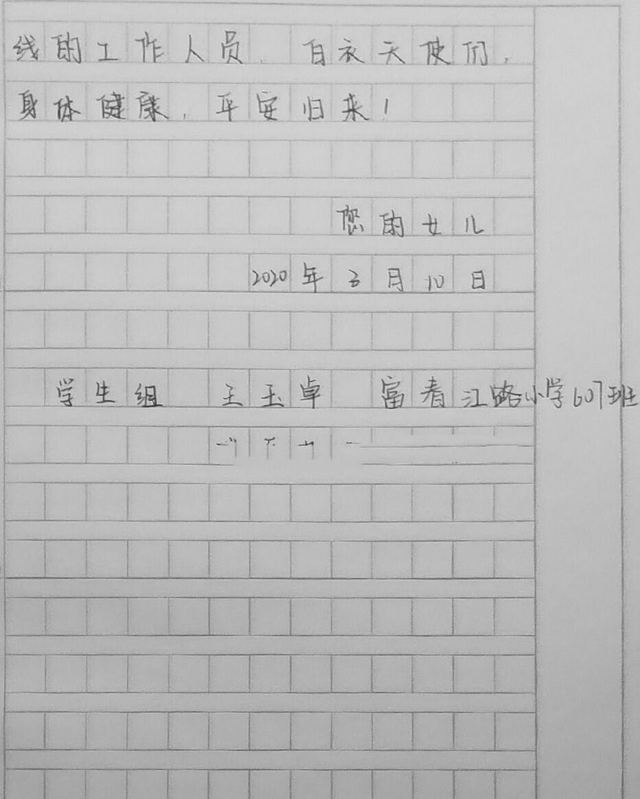 线的工作人员、白衣天使们，
身体健康，平安归来！
您的女儿
2020年3月10日
学生组 王玉卓 富春江路小学607班